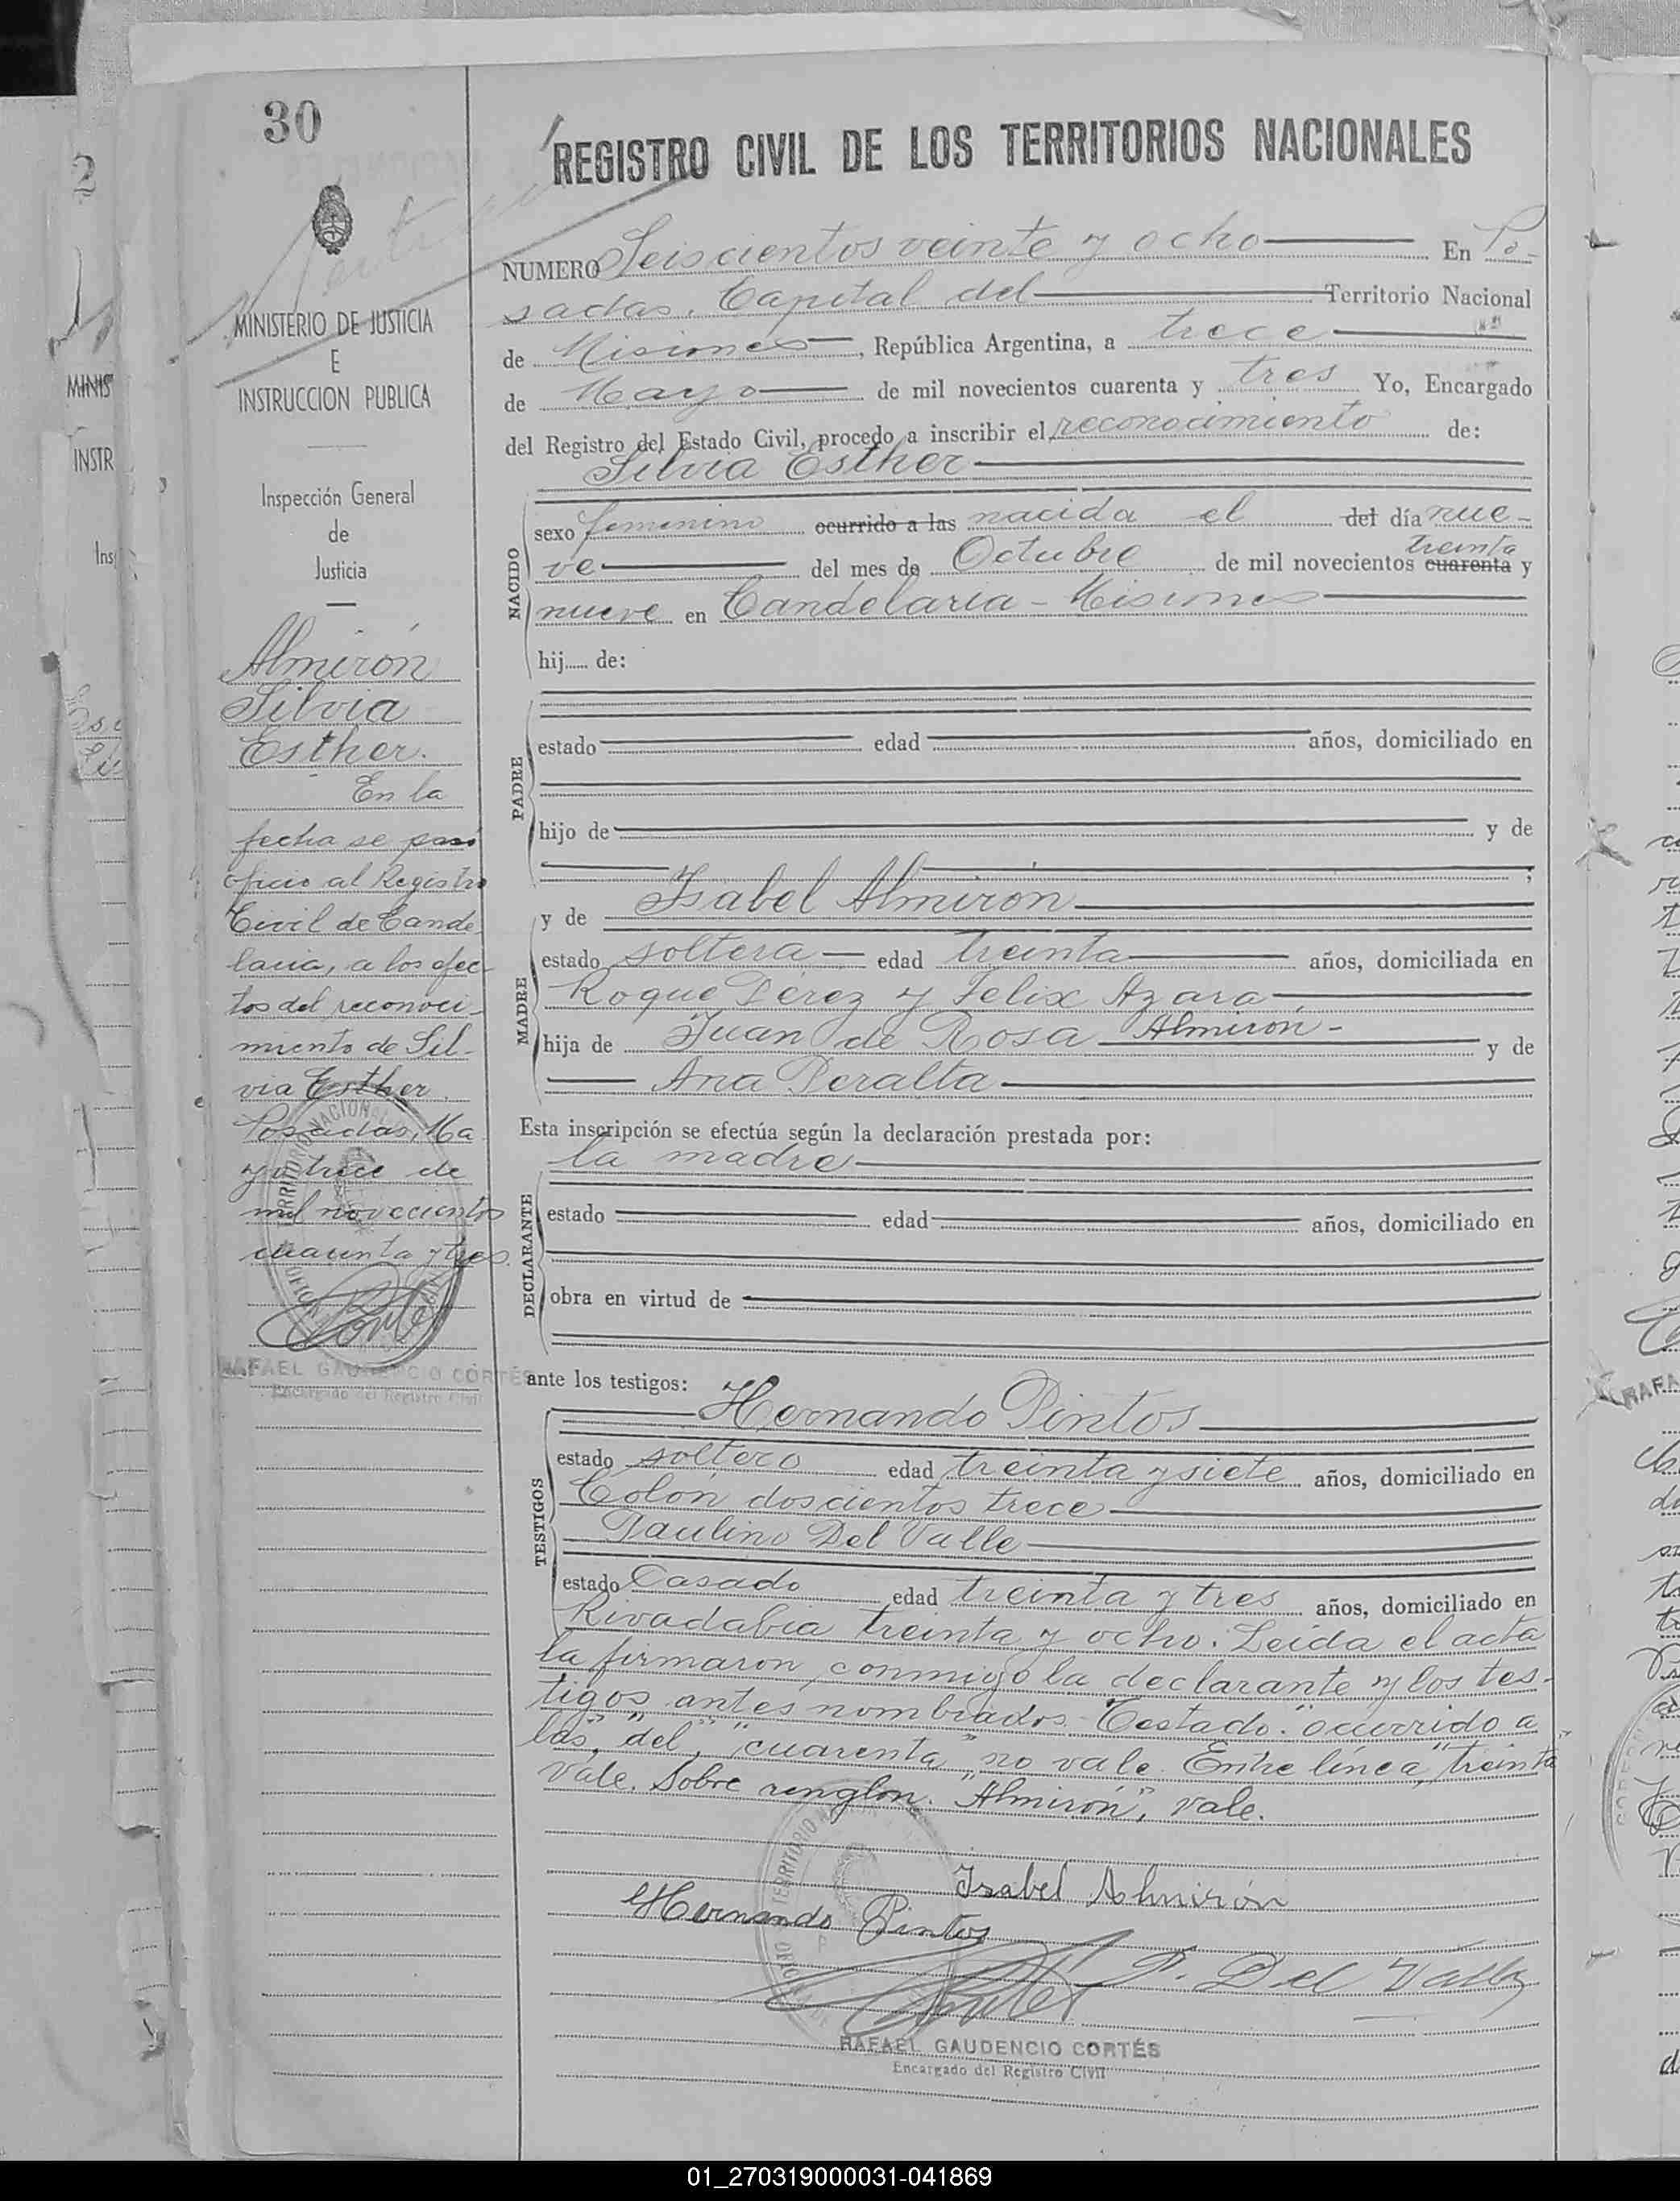 30
2
REGISTRO CIVIL DE LOS TERRITORIOS NACIONALES
MINISTERIO DE JUSTICIA
E
INSTRUCCION PUBLICA
Inspección General
de
Justicia
Almirón
Silvia
Esther.
En la
fecha se pasó
oficio al Registro
Civil de Cande
laria, a los efec-
tos del reconoci-
miento de Sil-
via Esther.
Posadas, Ma
yo trece de
mil novecientos
cuarenta y tres.
RAFAEL GAUDENCIO CORTÉS
Encargado del Registro Civil
NUMERO Seiscientos veinte y ocho En Po-
sadas, Capital del Territorio Nacional
de Misiones, República Argentina, a trece
de Mayo de mil novecientos cuarenta y tres Yo, Encargado
del Registro del Estado Civil, procedo a inscribir el reconocimiento de:
Silvia Esther
NACIDO
sexo femenino ocurrido a las nacida el del día nue-
treinta
ve del mes de Octubre de mil novecientos cuarenta y
nueve en Candelaria - Misiones
hij...... de:
PADRE
estado edad años, domiciliado en
hijo de y de
;
MADRE
y de Isabel Almiron
estado soltera edad treinta años, domiciliada en
Roque Pérez y Felix Azara
hija de Juan de Rosa Almirón - y de
Ana Peralta
Esta inscripción se efectúa según la declaración prestada por:
la madre
DECLARANTE
estado edad años, domiciliado en
obra en virtud de
ante los testigos:
TESTIGOS
Hernando Pintos
estado soltero edad treinta y siete años, domiciliado en
Colón doscientos trece
Paulino Del Valle
estado Casado edad treinta y tres años, domiciliado en
Rivadabia treinta y ocho. Leída el acta
la firmaron conmigo la declarante y los tes-
tigos antes nombrados - Testado: "ocurrido a
las", "del", "cuarenta" no vale. Entre línea "treinta"
vale. Sobre renglon: "Almirón", vale.
Isabel Almirón
Hernando Pintos
P. Del Valle
RAFAEL GAUDENCIO CORTÉS
Encargado del Registro Civil
01_270319000031-041869